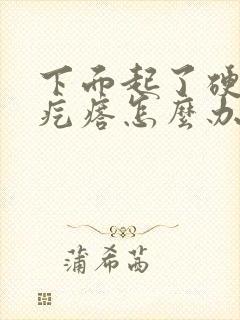 下而起了硬
疙瘩怎麼办
蒲希茜